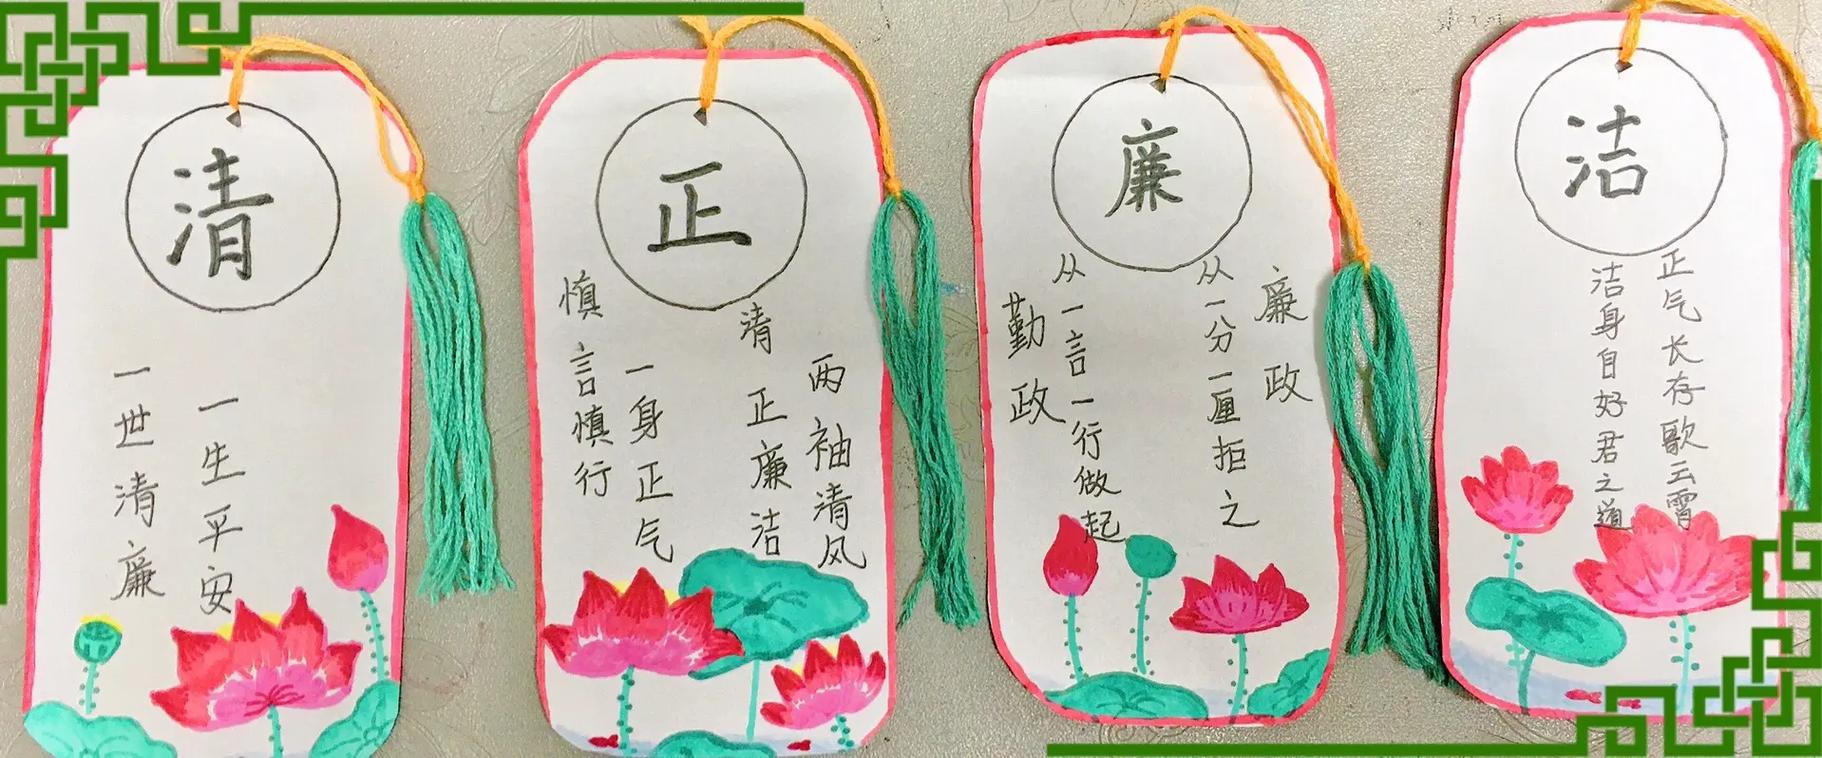 清
一生平安
一世清廉
正
两袖清风
清正廉洁
一身正气
慎言慎行
廉
廉政
从一分一厘拒之
从一言一行做起
勤政
洁
正气长存歌云霄
洁身自好君之道